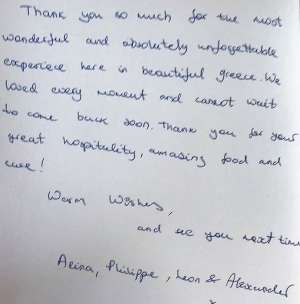 Thank you so much for the most
wonderful and absolutely unforgettable
experience here in beautiful greece. We
loved every moment and cannot wait
to come back soon. Thank you for your
great hospitality, amazing food and
care!
Warm Wishes,
and see you next time
Arina, Philippe, Leon & Alexander
x